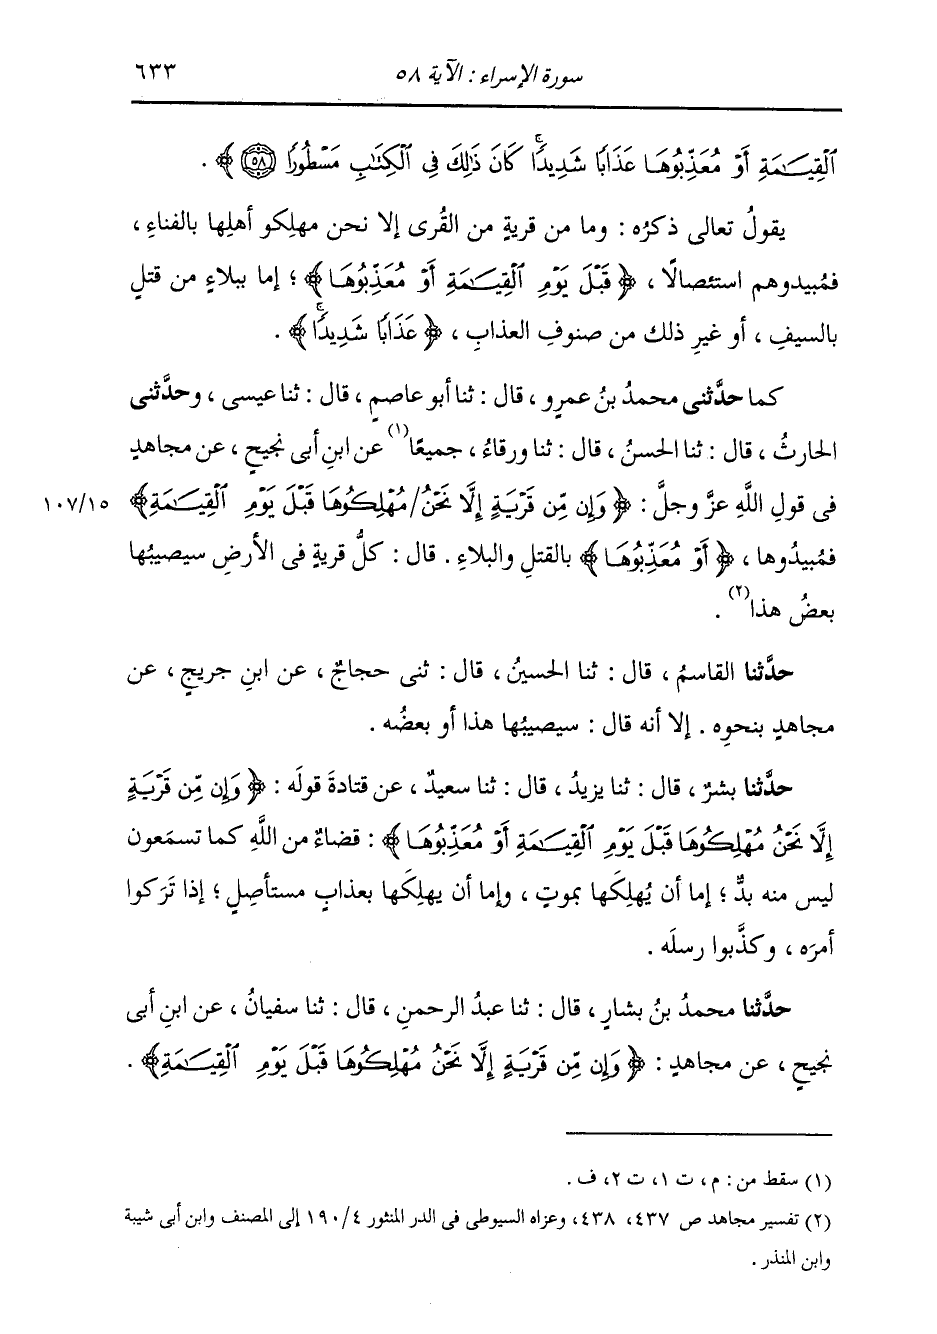 سورة الإسراء : الآية ٥٨
٦٣٣
ٱلْقِيَـٰمَةِ أَوْ مُعَذِّبُوهَا عَذَابًا شَدِيدًاۚ كَانَ ذَٰلِكَ فِى ٱلْكِتَـٰبِ مَسْطُورًا ﴿٥٨﴾ ﴾ .
يقولُ تعالى ذكرُه : وما من قريةٍ من القُرى إلا نحن مهلِكو أهلِها بالفناءِ ،
فمُبيدوهم استئصالًا ، ﴿ قَبْلَ يَوْمِ ٱلْقِيَـٰمَةِ أَوْ مُعَذِّبُوهَا ﴾ ؛ إما ببلاءٍ من قتلٍ
بالسيفِ ، أو غيرِ ذلك من صنوفِ العذابِ ، ﴿ عَذَابًا شَدِيدًاۚ ﴾ .
كما حدَّثنى محمدُ بنُ عمرٍو ، قال : ثنا أبو عاصمٍ ، قال : ثنا عيسى ، وحدَّثنى
الحارثُ ، قال : ثنا الحسنُ ، قال : ثنا ورقاءُ ، جميعًا(١) عن ابنِ أبى نجيحٍ ، عن مجاهدٍ
فى قولِ اللَّهِ عزَّ وجلَّ : ﴿ وَإِن مِّن قَرْيَةٍ إِلَّا نَحْنُ / مُهْلِكُوهَا قَبْلَ يَوْمِ ٱلْقِيَـٰمَةِ ﴾ ١٠٧/١٥
فمُبيدُوها ، ﴿ أَوْ مُعَذِّبُوهَا ﴾ بالقتلِ والبلاءِ . قال : كلُّ قريةٍ فى الأرضِ سيصيبُها
بعضُ هذا(٢) .
حدَّثنا القاسمُ ، قال : ثنا الحسينُ ، قال : ثنى حجاجٌ ، عن ابنِ جريجٍ ، عن
مجاهدٍ بنحوِه . إلا أنه قال : سيصيبُها هذا أو بعضُه .
حدَّثنا بشرٌ ، قال : ثنا يزيدُ ، قال : ثنا سعيدٌ ، عن قتادةَ قولَه : ﴿ وَإِن مِّن قَرْيَةٍ
إِلَّا نَحْنُ مُهْلِكُوهَا قَبْلَ يَوْمِ ٱلْقِيَـٰمَةِ أَوْ مُعَذِّبُوهَا ﴾ : قضاءٌ من اللَّهِ كما تسمَعون
ليس منه بدٌّ ؛ إما أن يُهلِكَها بموتٍ ، وإما أن يهلِكَها بعذابٍ مستأصِلٍ ؛ إذا تَرَكوا
أمرَه ، وكذَّبوا رسلَه .
حدَّثنا محمدُ بنُ بشارٍ ، قال : ثنا عبدُ الرحمنِ ، قال : ثنا سفيانُ ، عن ابنِ أبى
نجيحٍ ، عن مجاهدٍ : ﴿ وَإِن مِّن قَرْيَةٍ إِلَّا نَحْنُ مُهْلِكُوهَا قَبْلَ يَوْمِ ٱلْقِيَـٰمَةِ ﴾ .
(١) سقط من : م ، ت ١، ت ٢، ف .
(٢) تفسير مجاهد ص ٤٣٧، ٤٣٨، وعزاه السيوطى فى الدر المنثور ١٩٠/٤ إلى المصنف وابن أبى شيبة
وابن المنذر .